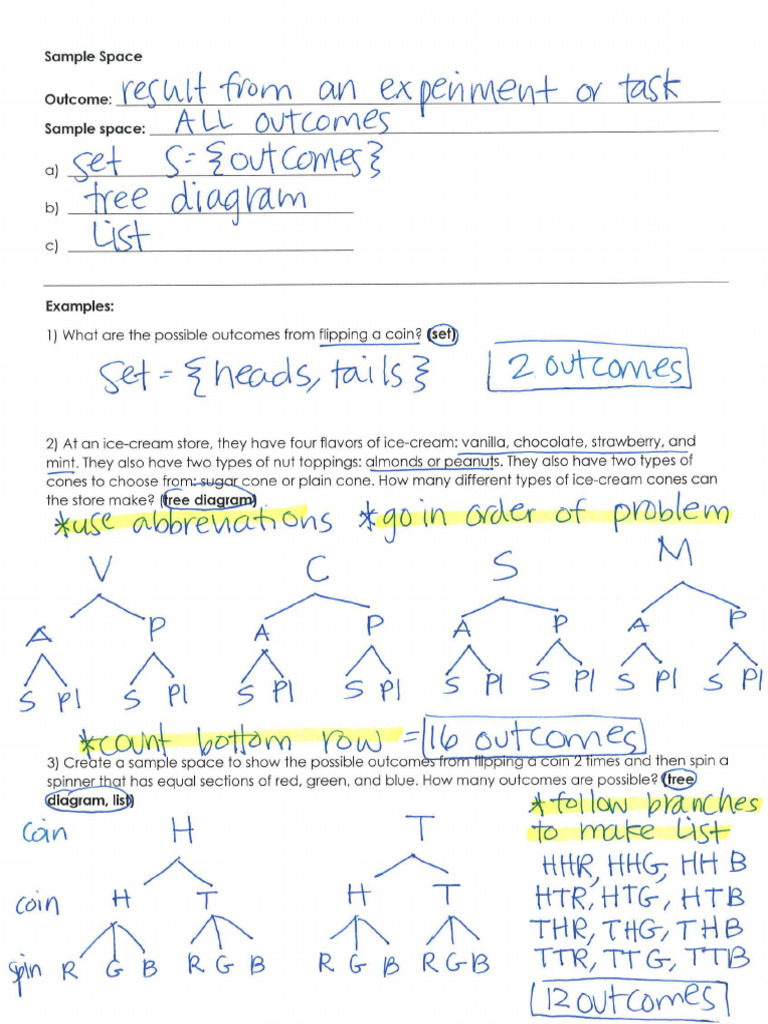 Sample Space
Outcome: result from an experiment or task
Sample space: ALL outcomes
a) set S={outcomes}
b) tree diagram
c) List
Examples:
1) What are the possible outcomes from flipping a coin? (set)
set = {heads, tails} 2 outcomes
2) At an ice-cream store, they have four flavors of ice-cream: vanilla, chocolate, strawberry, and
mint. They also have two types of nut toppings: almonds or peanuts. They also have two types of
cones to choose from: sugar cone or plain cone. How many different types of ice-cream cones can
the store make? (tree diagram)
*use abbreviations *go in order of problem
V C S M
A P A P A P A P
S Pl S Pl S Pl S Pl S Pl S Pl S Pl S Pl
*count bottom row = 16 outcomes
3) Create a sample space to show the possible outcomes from flipping a coin 2 times and then spin a
spinner that has equal sections of red, green, and blue. How many outcomes are possible? (tree
diagram, list)
*follow branches
to make List
coin H T
HHR, HHG, HHB
coin H T H T
HTR, HTG, HTB
THR, THG, THB
spin R G B R G B R G B R G B
TTR, TTG, TTB
12 outcomes